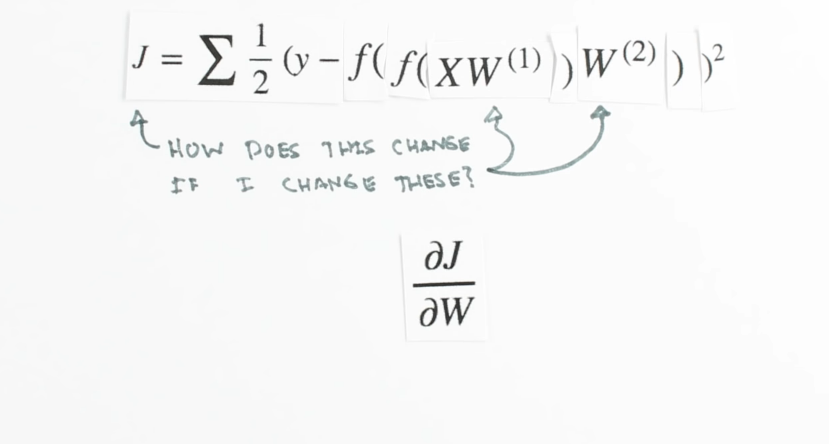 J = ∑ 1/2 (y − f( f( XW⁽¹⁾ ) W⁽²⁾ ) )²
HOW DOES THIS CHANGE
IF I CHANGE THESE?
∂J
∂W